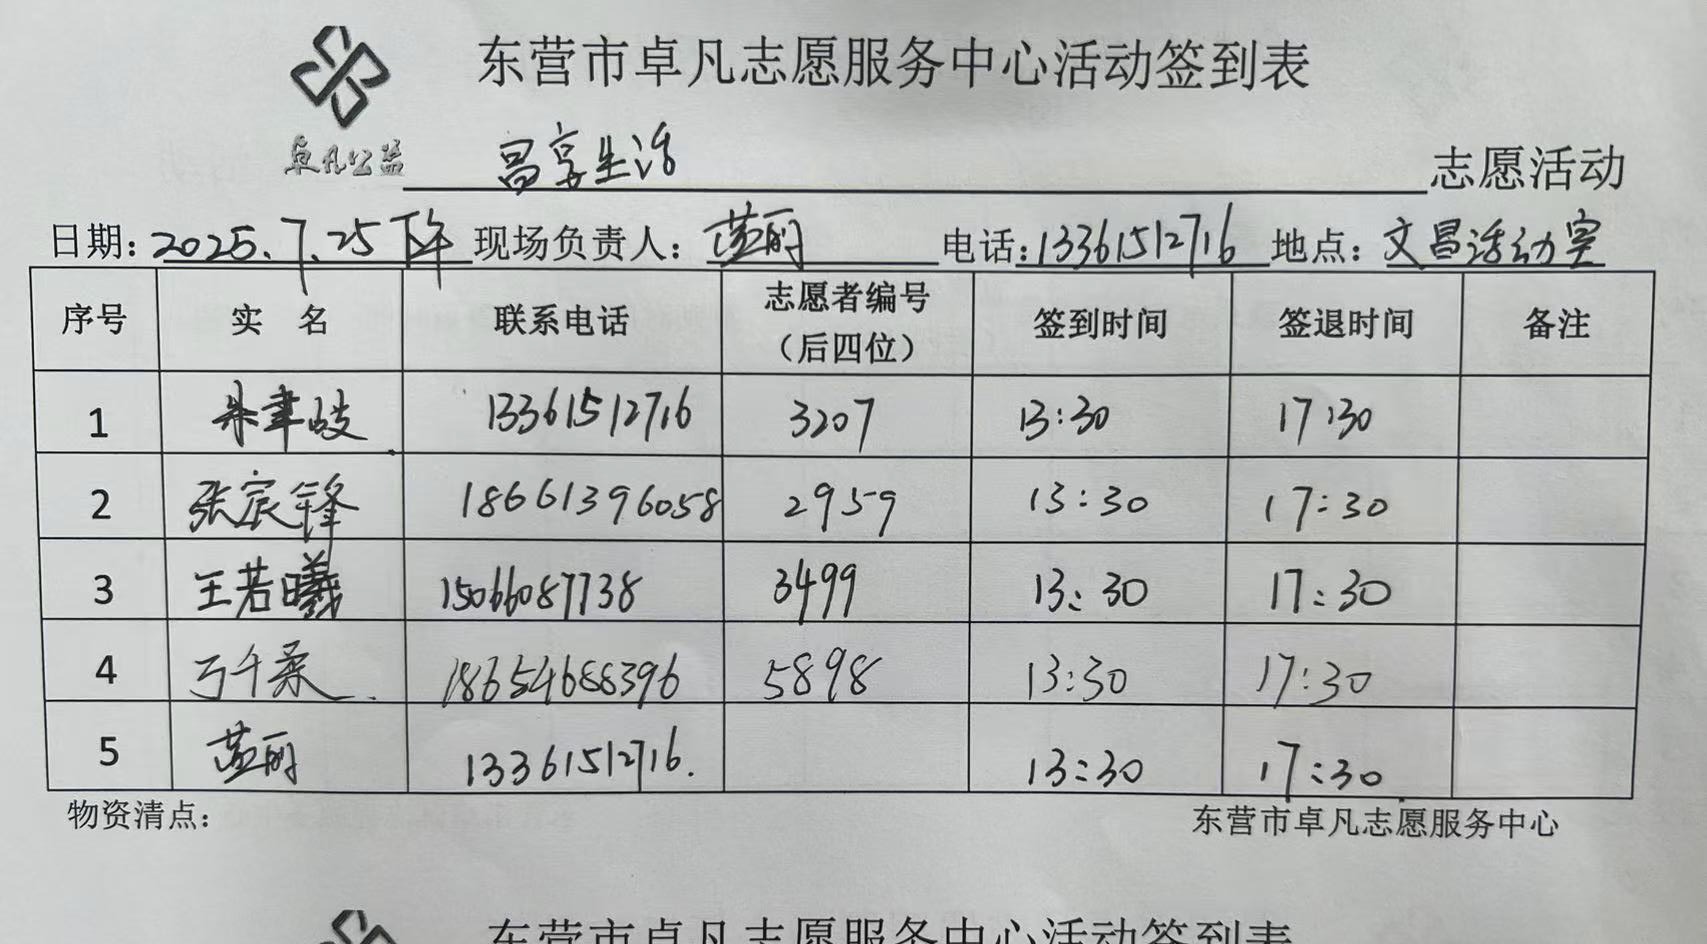 东营市卓凡志愿服务中心活动签到表
卓凡公益 昌享生活 志愿活动
日期: 2025.7.25下午 现场负责人: 蓝丽 电话: 13361512716 地点: 文昌活动室
序号 实 名 联系电话 志愿者编号（后四位） 签到时间 签退时间 备注
1 朱聿岐 13361512716 3207 13:30 17:30
2 张宸锋 18661396058 2959 13:30 17:30
3 王若曦 15066087738 3499 13:30 17:30
4 千柔 18654688396 5898 13:30 17:30
5 蓝丽 13361512716. 13:30 17:30
物资清点: 东营市卓凡志愿服务中心
东营市卓凡志愿服务中心活动签到表